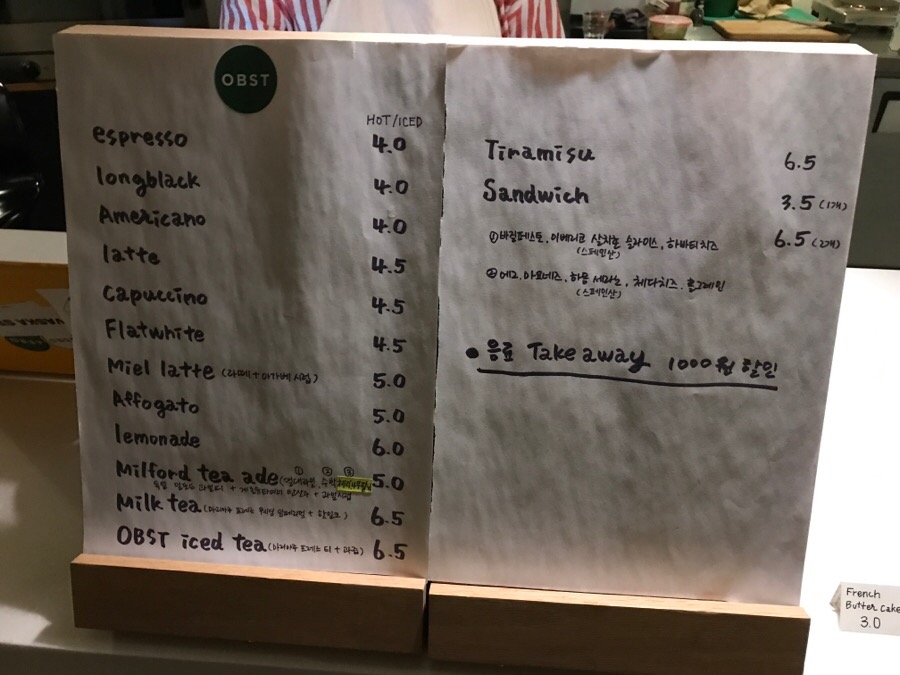 OBST
HOT/ICED
espresso 4.0
longblack 4.0
Americano 4.0
latte 4.5
Capuccino 4.5
Flatwhite 4.5
Miel latte (라떼+아가베 시럽) 5.0
Affogato 5.0
lemonade 6.0
Milford tea ade ① ② ③ 5.0
Milk tea 6.5
OBST iced tea 6.5
Tiramisu 6.5
Sandwich 3.5 (1개)
6.5 (2개)
①바질페스토, 이베리코 살치촌 슬라이스, 하바티치즈
(스페인산)
②에그.마요네즈.하몽 세라노, 체다치즈.홀그레인
(스페인산)
● 음료 Take away 1000원 할인
French
Butter cake
3.0